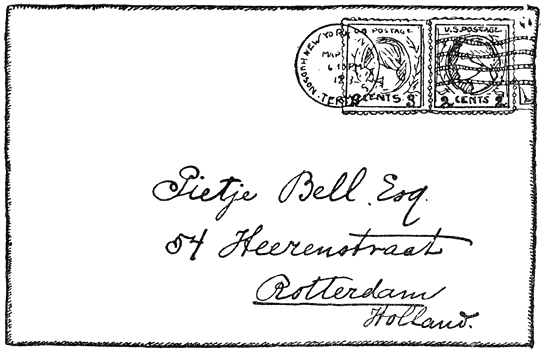 NEW YORK
U.S. POSTAGE
MAR
6 PM
18
HUDSON TER
CENTS 3
U.S. POSTAGE
2 CENTS 2
Pietje Bell. Esq.
54 Heerenstraat
Rotterdam
Holland.